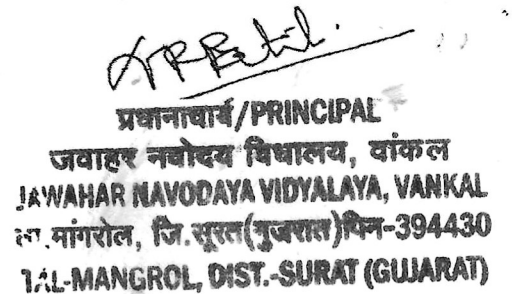 प्रधानाचार्य/PRINCIPAL
जवाहर नवोदय विधालय, वांकल
JAWAHAR NAVODAYA VIDYALAYA, VANKAL
ता.मांगरोल, जि.सूरत(गुजरात)पिन-394430
TAL-MANGROL, DIST.-SURAT (GUJARAT)